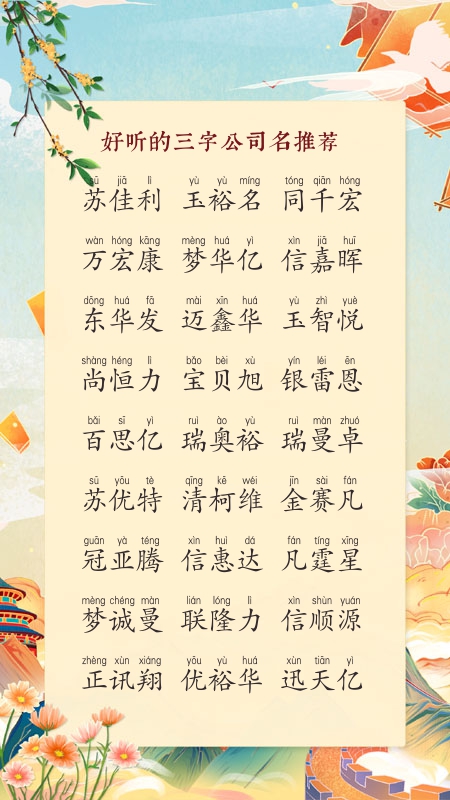 好听的三字公司名推荐
sū jiā lì yù yù míng tóng qiān hóng
苏佳利 玉裕名 同千宏
wàn hóng kāng mèng huá yì xìn jiā huī
万宏康 梦华亿 信嘉晖
dōng huá fā mài xīn huá yù zhì yuè
东华发 迈鑫华 玉智悦
shàng héng lì bǎo bèi xù yín léi ēn
尚恒力 宝贝旭 银雷恩
bǎi sī yì ruì ào yù ruì màn zhuó
百思亿 瑞奥裕 瑞曼卓
sū yōu tè qīng kē wéi jīn sài fán
苏优特 清柯维 金赛凡
guān yà téng xìn huì dá fán tíng xīng
冠亚腾 信惠达 凡霆星
mèng chéng màn lián lóng lì xìn shùn yuán
梦诚曼 联隆力 信顺源
zhèng xùn xiáng yōu yù huá xùn tiān yì
正讯翔 优裕华 迅天亿